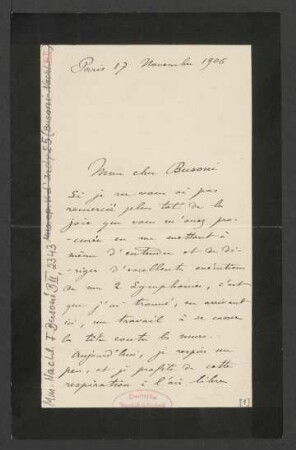 Paris 17 Novembre 1906
Mon cher Busoni
Si je ne vous ai pas
remercié plus tôt de la
joie que vous m'avez pro-
-curée en me mettant à
même d'entendre et de di-
riger l'excellente exécution
de ma 2 Symphonie, c'est
que j'ai trouvé, en arrivant
ici, un travail à se casser
la tête contre les murs..
Aujourd'hui, je respire un
peu, et je profite de cette
respiration à l'air libre
[1]
Mus. Nachl. F. Busoni B II, 2343